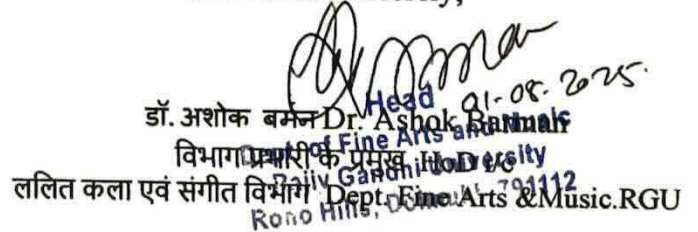 01-08-2025.
डॉ. अशोक बर्मन Dr. Ashok Barman
विभाग प्रभारी के प्रमुख HoD I/c
ललित कला एवं संगीत विभाग Dept. Fine Arts &Music.RGU
Head
Dept. of Fine Arts and Music
Rajiv Gandhi University
Rono Hills, Doimukh-791112